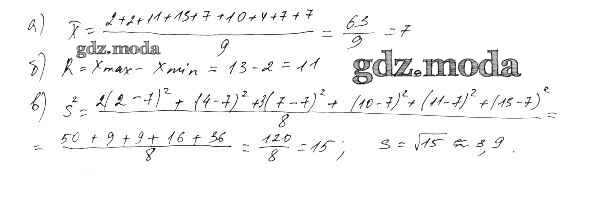 а) x̄ = (2+2+11+13+7+10+4+7+7)/9 = 63/9 = 7
gdz.moda
б) R = xmax - xmin = 13 - 2 = 11
gdz.moda
в) s² = (2(2-7)² + (4-7)² + 3(7-7)² + (10-7)² + (11-7)² + (13-7)²)/8 =
= (50 + 9 + 9 + 16 + 36)/8 = 120/8 = 15; s = √15 ≈ 3,9.